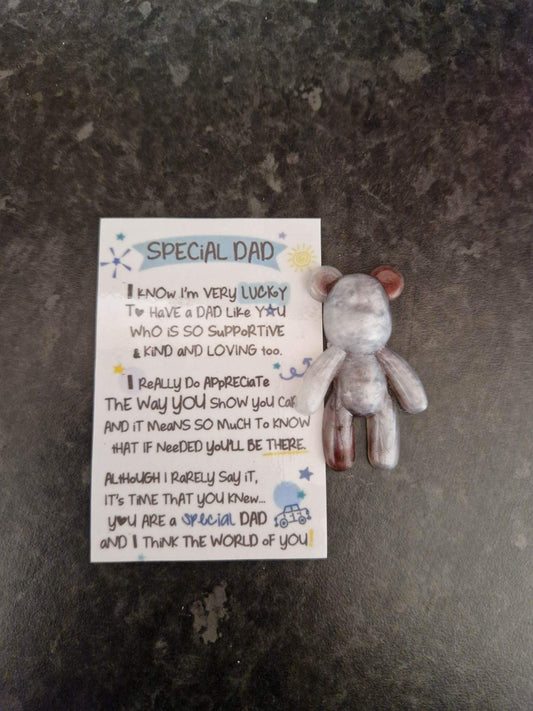 SPECiAL DAD
I KNOW I'M VERY LUCKY
TO HAVE a DAD LiKE YOU
WHO iS SO SUPPORTiVE
& KiND aND LOVING too.
I REALLY DO APPRECiaTE
THE WAY YOU SHOW YOU
AND iT MEANS SO MUCH TO KNOW
tHAT IF NEEDED YOU'LL BE THERE.
ALtHOUGH I RARELY SAY iT,
IT'S TIME THAT YOU KNEW...
YOU ARE a special DAD
aND I THiNK THE WORLD OF YOU!